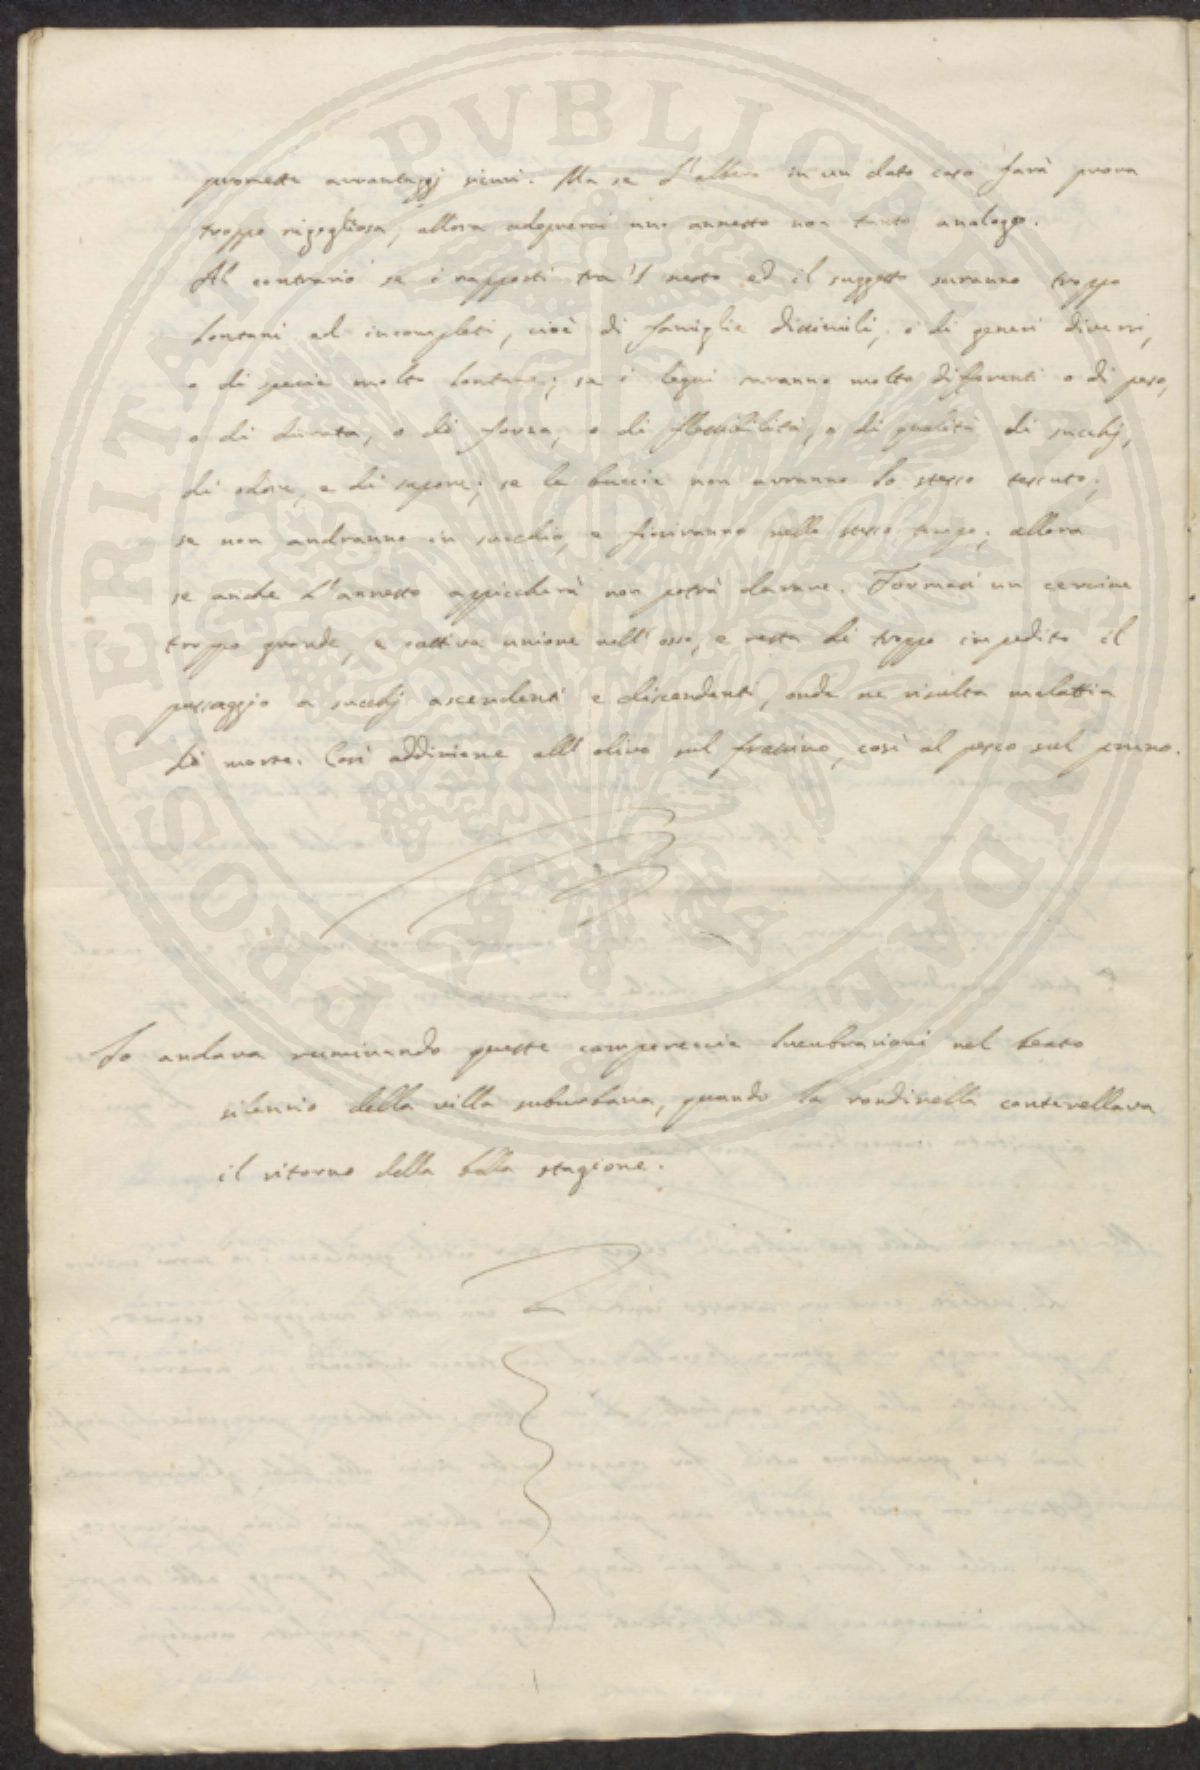 promette avvantaggj sicuri. Ma se l'albero in un dato caso farà prova
troppo rigogliosa, allora adoprerai uno annesto non tanto analogo.
Al contrario se i rapporti tra 'l nesto ed il suggetto saranno troppo
lontani ed incompleti, cioè di famiglie dissimili, o di generi diversi,
o di specie molto lontane; se i legni saranno molto differenti o di peso,
o di durata, o di forza, o di flessibilità, o di qualità di succhj,
di odore, e di sapore; se le buccie non avranno lo stesso tessuto;
se non andranno in succhio, e fioriranno nello stesso tempo; allora
se anche l'annesto appiccherà non potrà durare. Formasi un cercine
troppo grande, e cattiva unione nell'osso, e resta di troppo impedito il
passaggio a succhj ascendenti e discendenti, onde ne risulta malattia
di morte. Così addiviene all'olivo sul frassino, così al pesco sul pruno.
Io andava ruminando queste camperecce lucubrazioni nel beato
silenzio della villa suburbana, quando la rondinella canterellava
il ritorno della bella stagione.
PROSPERITATI PVBLICAE AVGENDAE